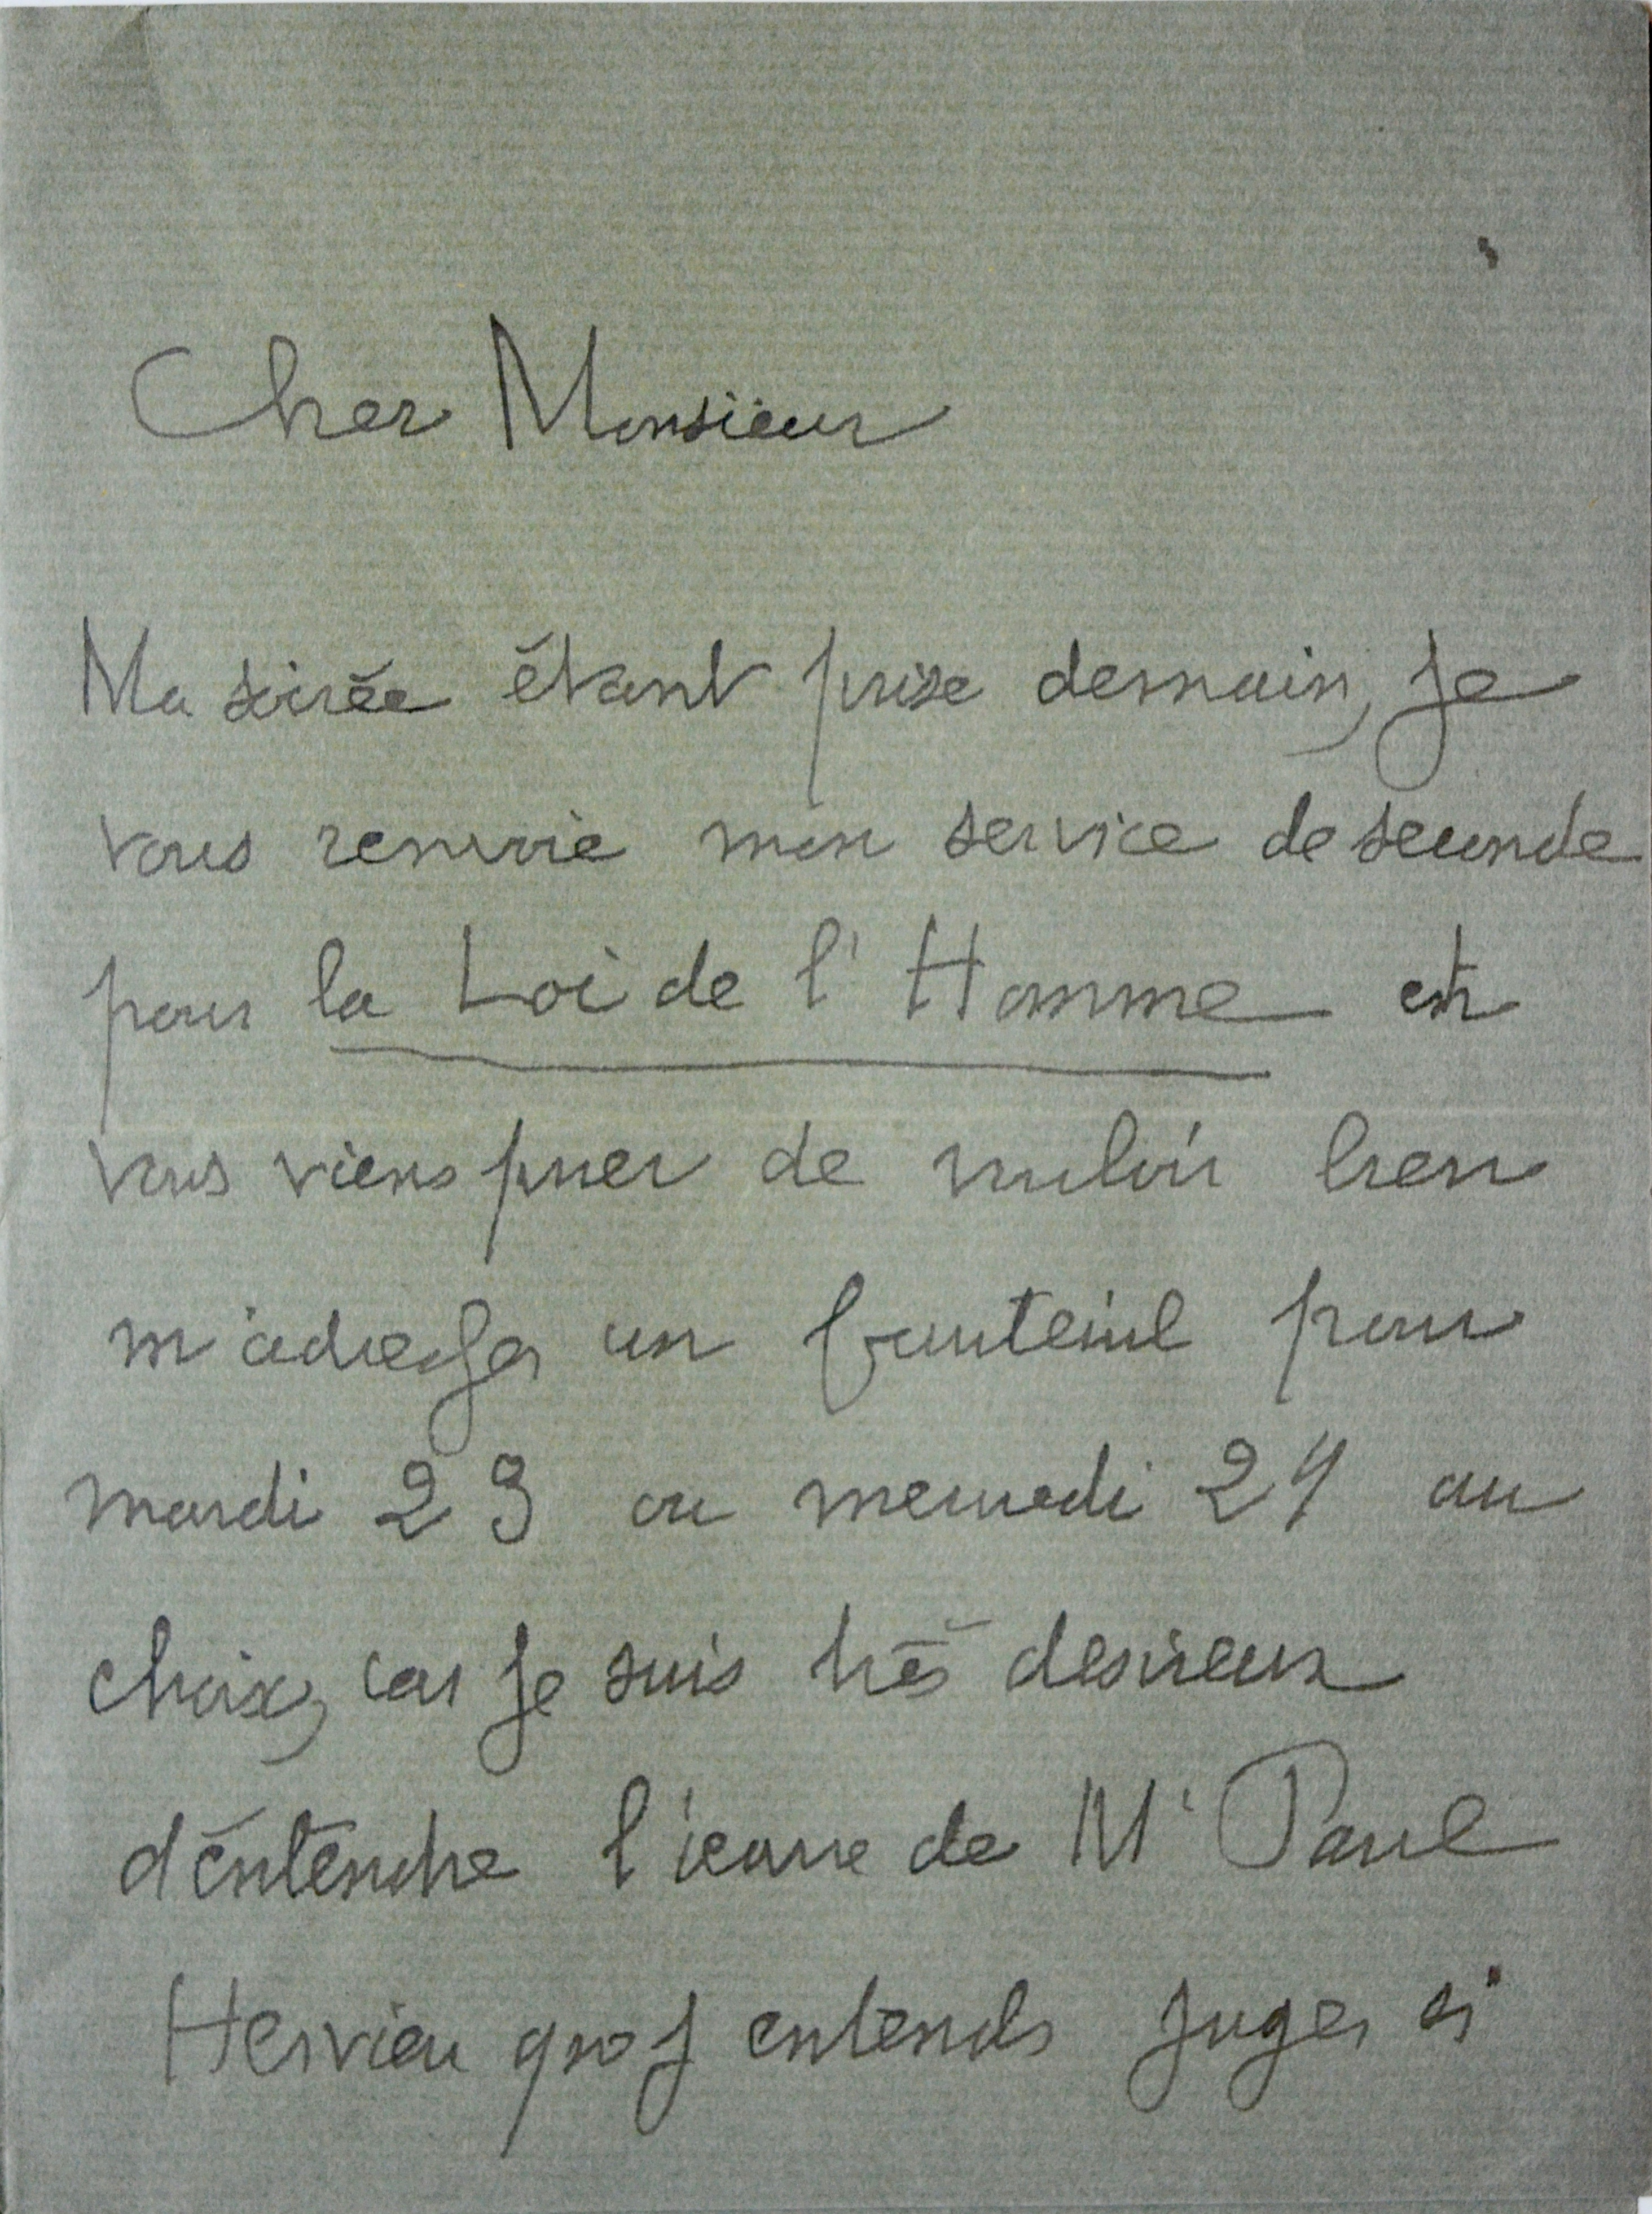 Cher Monsieur
Ma soirée étant prise demain, je
vous renvoie mon service de seconde
pour la Loi de l'Homme et
vous viens prier de vouloir bien
m'adresser un fauteuil pour
mardi 23 ou mercredi 24 au
choix, car je suis très desireux
d'entendre l'œuvre de Mr Paul
Hervieu que j entends juger si